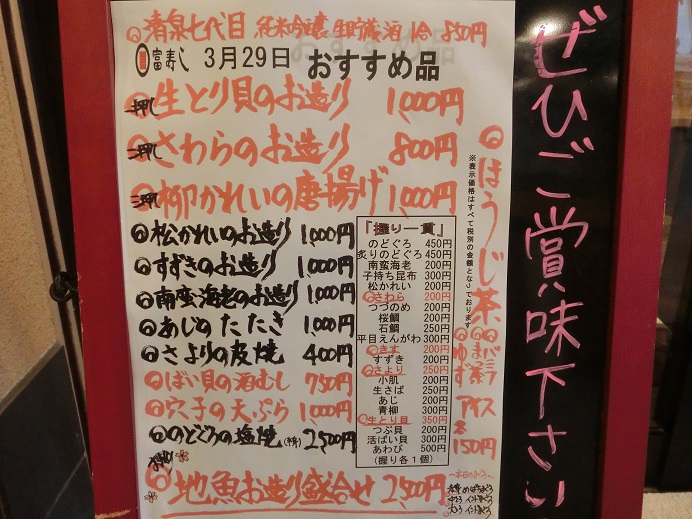 清泉七代目 純米吟醸 生貯蔵酒 1合 850円
富寿し 3月29日 おすすめ品
一押し 生とり貝のお造り 1,000円
二押し さわらのお造り 800円
三押し 柳かれいの唐揚げ 1,000円
松かれいのお造り 1,000円
すずきのお造り 1,000円
南蛮海老のお造り 1,000円
あじのたたき 1,000円
さよりの皮焼 400円
ばい貝の酒むし 750円
穴子の天ぷら 1,000円
のどぐろの塩焼 2,500円
地魚お造り盛合せ 2,500円
「握り一貫」
のどぐろ 450円
炙りのどぐろ 450円
南蛮海老 200円
子持ち昆布 300円
松かれい 200円
さわら 200円
つづのめ 200円
桜鯛 200円
石鯛 250円
平目えんがわ 300円
きす 200円
すずき 200円
さより 250円
小肌 200円
生さば 250円
あじ 200円
青柳 300円
生とり貝 350円
つぶ貝 200円
活ばい貝 300円
あわび 500円
(握り各1個)
※表示価格はすべて税別の金額となっております
ほうじ茶、
バニラ
ごま
抹茶
ゆず
アイス
各
150円
ぜひご賞味下さい